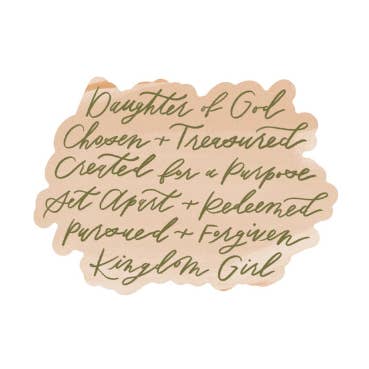 Daughter of God
Chosen + Treasured
Created for a Purpose
Set Apart + Redeemed
Pursued + Forgiven
Kingdom Girl